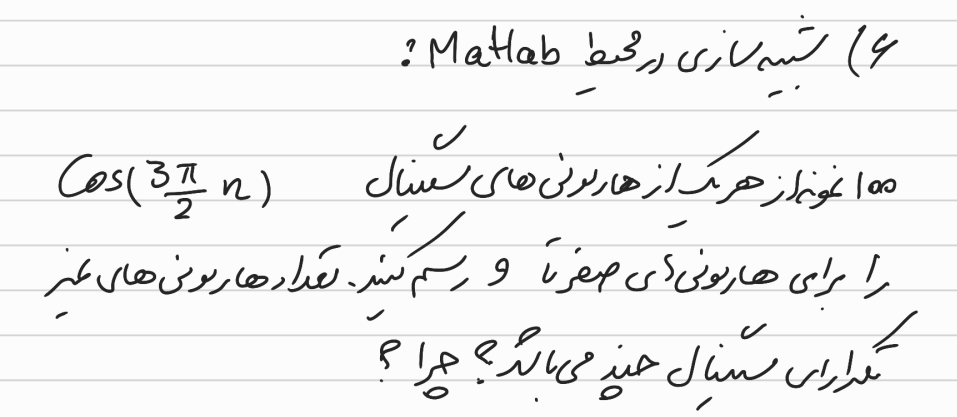 ۶) شبیه سازی در محیط Matlab:
۱۰۰ نمونه از هر یک از هارمونی های سیگنال Cos(3π/2 n)
را برای هارمونی های صفر تا ۹ رسم کنید. تعداد هارمونی های غیر
تکراری سیگنال چند می باشد؟ چرا؟